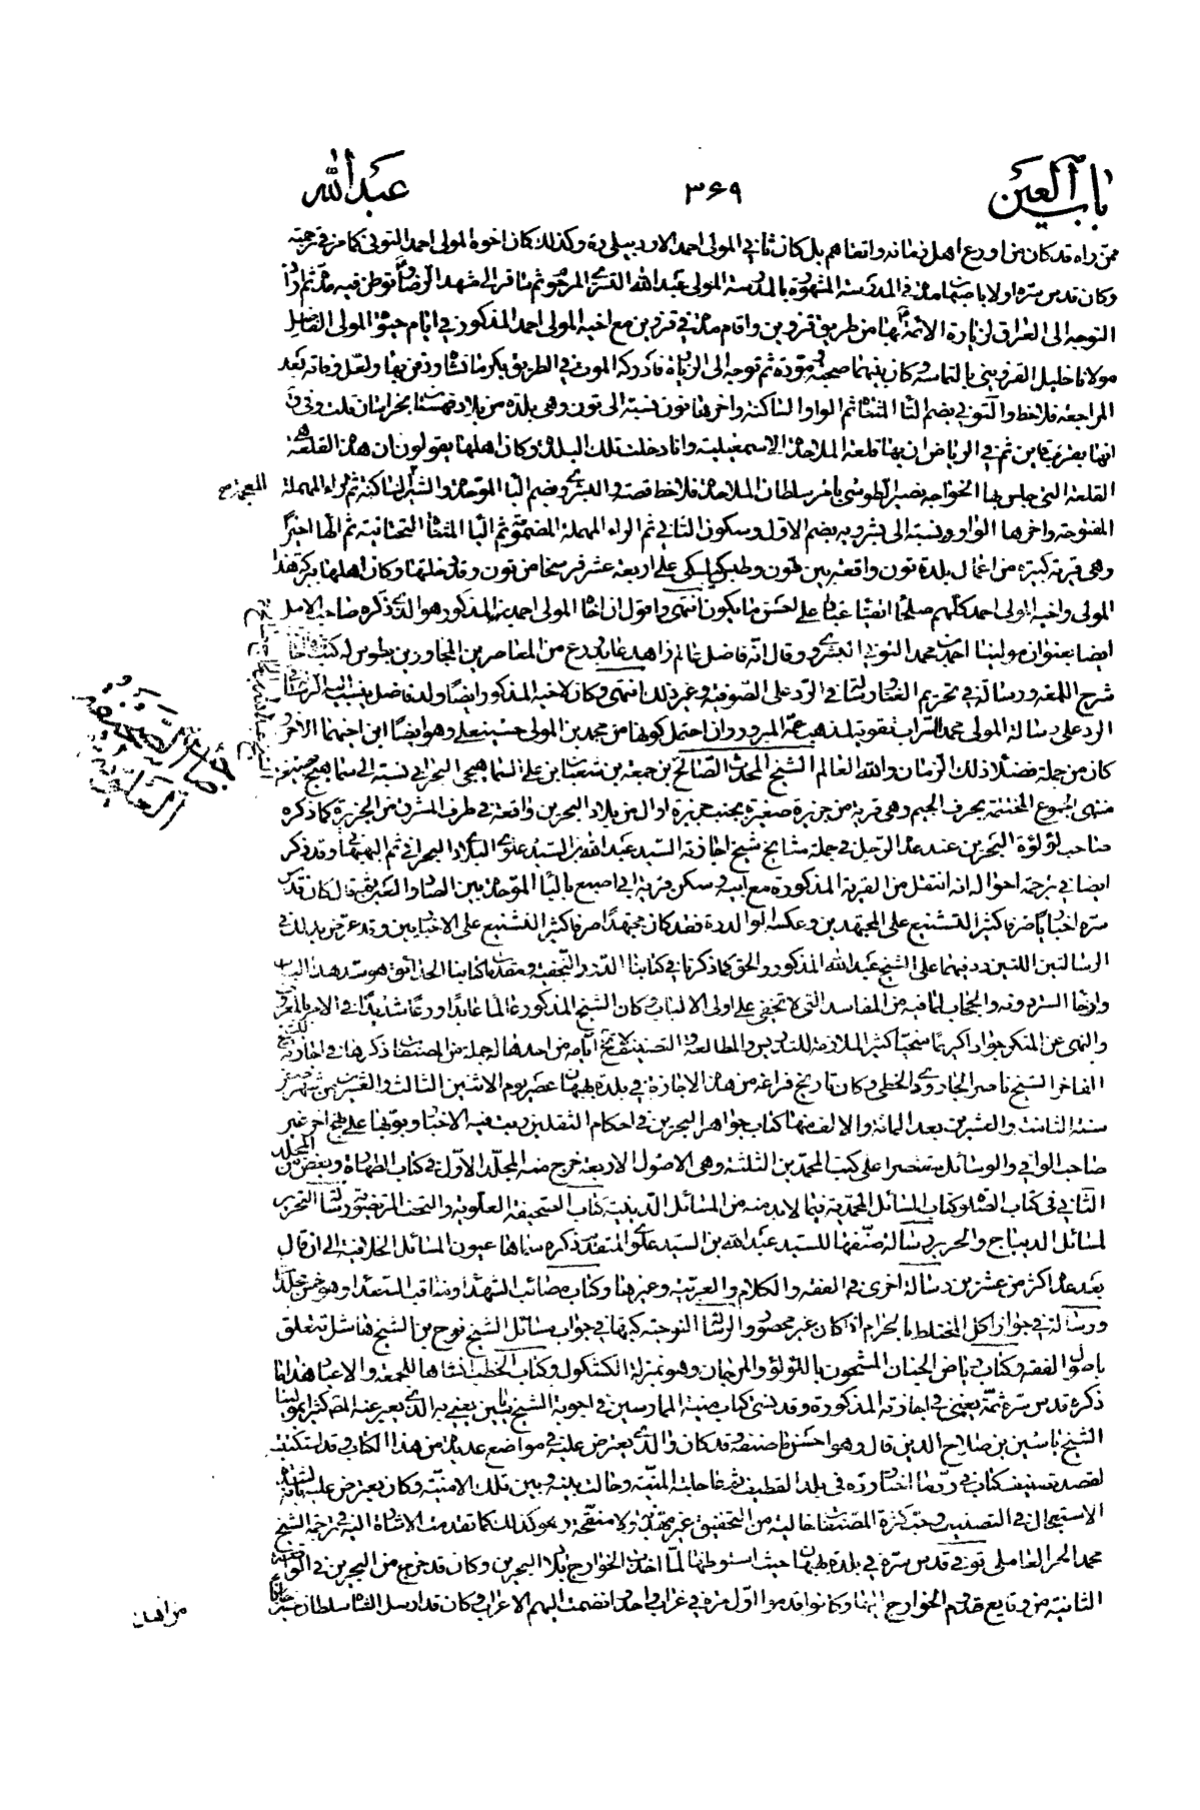 باب العين
٣۶٩
عبد الله
ممن راه قد كان من اورع اهل زمانه واتقاهم بل كان ثاني المولى احمد الاردبيلي ره وكذلك كان اخوه المولى احمد التوني كما مر في ترجمته
وكان قدس سره اولا باصبهان مدة في المدرسة المشهورة بالمدرسة المولى عبد الله التستري المرحوم ثم سافر الى مشهد الرضا وتوطن فيه مدة ثم اراد
التوجه الى العراق لزيارة الائمة بها من طريق قزوين واقام مدة في قزوين مع اخيه المولى احمد المذكور في ايام حيوة المولى الفاضل
مولانا خليل القزويني بالتماسه وكان بينهما صحبة ومودة ثم توجه الى الزيارة فادركه الموت في الطريق بكرمانشاه ودفن بها ولعل وفاته بعد
المراجعة فلاحظ والتوني بضم التاء المثناة ثم الواو الساكنة واخرها نون نسبة الى تون وهي بلدة من بلاد قهستان بخراسان
انها بقرب قاين ثم في الرياض ان بها قلعة الملاحدة الاسمعيلية وانا دخلت تلك البلدة وكان اهلها يقولون ان هذه القلعة هي
القلعة التي حبس بها الخواجه نصير الطوسي بامر سلطان الملاحدة فلاحظ قصته والبشروي بضم الباء الموحدة والشين الساكنة ثم الراء المهملة
المعجمة صح
المفتوحة واخرها الواو ونسبة الى بشرويه بضم الاول وسكون الثاني ثم الراء المهملة المضمومة ثم الياء المثناة التحتانية ثم الهاء اخيرا
وهي قرية كبيرة من اعمال بلدة تون واقعة بين تون وطبس كيلكي على اربعة عشر فرسخا من تون وقد دخلتها وكان اهلها ببركة هذا
المولى واخيه المولى احمد كلهم صلحاء اتقياء عباد على احسن ما يكون انتهى واقول ان اخاه المولى احمد بن المذكور هو الذي ذكره صاحب الامل
ايضا بعنوان مولينا احمد بن محمد التوني البشروي وقال انه فاضل عالم زاهد عابد ورع من المعاصرين المجاورين بطوس له كتب منها حاشية
شرح اللمعة ورسالة في تحريم الغناء ورسالة في الرد على الصوفية وغير ذلك انتهى وكان لاخيه المذكور ايضا ولد فاضل ينسب اليه رسالة في
الرد على رسالة المولى محمد السراب تقوية لمذهب عمه المبرور وان احتمل كونها من محمد بن المولى حسينعلي وهو ايضا ابن اخيهما الاخر و
كان من جملة فضلاء ذلك الزمان والله العالم الشيخ المحدث الصالح بن جمعة بن شعبان بن علي السماهيجي البحراني نسبة الى سماهيج
الشيخ عبد الله بن صالح صح
منتهى الجموع المختتمة بحرف الجيم وهي قرية من جزيرة صغيرة بجنب جزيرة اوال من بلاد البحرين واقعة في طرف المشرق من الجزيرة كما ذكره
صاحب لؤلؤة البحرين عند عد الرجل في جملة مشايخ شيخ اجازته السيد عبد الله بن السيد علوي البلادي البحراني ثم البهبهاني وقد ذكر
ايضا في ترجمة احواله انه انتقل من القرية المذكورة مع ابيه وسكن قرية ابي اصبع بالباء الموحدة بين الصاد والعين بقيتها كان قدس
سره اخباريا صرفا كثير التشنيع على المجتهدين وعكسه الوالد ره فقد كان مجتهدا صرفا كثير التشنيع على الاخباريين وقد عرض بذلك في
الرسالتين اللتين رد فيهما على الشيخ عبد الله المذكور والحق كما ذكرنا في كتابنا الدرر النجفية ومقدمات كتابنا الحدائق هو سد هذا الباب
وارخاء الستر دونه والحجاب لما فيه من المفاسد التي لا تخفى على اولى الالباب كان الشيخ المذكور عالما عابدا ورعا شديدا في الامر بالمعروف
والنهي عن المنكر جوادا كريما سخيا كثير الملازمة للتدريس والمطالعة والتصنيف لا تخلو ايامه من احدها له جملة من المصنفات ذكرها في اجازته للشيخ
الفاخر الشيخ ناصر الجارودي الخطي وكان تاريخ فراغه من هذه الاجازة في بلدة بهبهان عصر يوم الاثنين الثالث والعشرين من شهر صفر
سنة الثامنة والعشرين بعد المائة والالف منها كتاب جواهر البحرين في احكام الثقلين رتب فيه الاخبار وبوبها على نهج اخر غير
صاحب الوافي والوسائل مقتصرا على كتب المحمدين الثلثة وهي الاصول الاربعة خرج منه المجلد الاول في كتاب الطهارة وبعض من المجلد
الثاني في كتاب الصلوة كتاب المسائل المحمدية فيما لا بد منه من المسائل الدينية كتاب الصحيفة العلوية والتحفة المرتضوية رسالة التحرير
لمسائل الديباج والحرير رسالة صنفها للسيد عبد الله بن السيد علوي المتقدم ذكره سماها عيون المسائل الخلافية الى ان قال
بعد عد اكثر من عشرين رسالة اخرى في الفقه والكلام والعربية وغيرها وكتاب مصائب الشهداء ومناقب السعداء وهو خمس مجلدات
ورسالة في جواز اكل المختلط بالحرام اذا كان غير محصور والرسالة النوحية كتبها في جواب مسائل الشيخ نوح بن الشيخ هاشل تتعلق
باصول الفقه وكتاب رياض الجنان المشحون باللؤلؤ والمرجان وهو بمنزلة الكشكول وكتاب الخطب انشاها للجمعة والاعياد هذا ما
ذكره قدس سره ثمة يعني في اجازته المذكورة وقد نسي كتاب منية الممارسين في اجوبة الشيخ ياسين يعني به الذي يعبر عنه المص كثيرا بمولينا
الشيخ ياسين بن صلاح الدين قال وهو احسن ما صنفه وقد كان والدي يعترض عليه في مواضع عديدة من هذا الكتاب وقد استكتبه
لقصد تصنيف كتاب في رد ما اختاره ورده في بلد القطيف ثم عاجلته المنية وحالت بينه وبين تلك الامنية وكان يعترض عليه
الاستعجال في التصنيف وحب كثرة المصنفات خالية من التحقيق غير مهذبة ولا منقحة وهو كذلك كما تقدمت الاشارة اليه في ترجمة الشيخ
محمد الحر العاملي توفي قدس سره في بلدة بهبهان حيث استوطنها لما اخذت الخوارج بلاد البحرين وكان قد خرج من البحرين في
الثانية من وقايع قدوم الخوارج اليها وكانوا قد قدموا اول مرة في غراب واحد انضمت اليهم الاعراب وكان قد ارسل الشاه سلطان حسين
من اهل